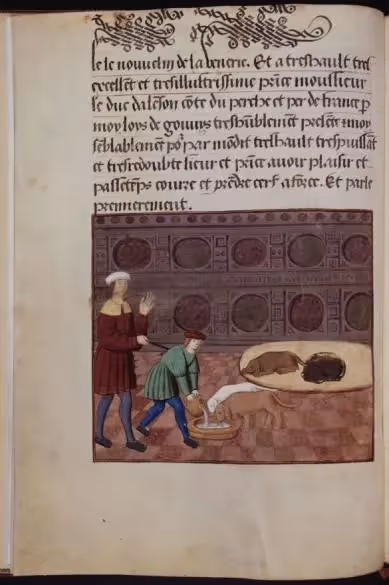 se le nouvelin de la venerie. Et a treshault tres
excellent et tresillustrissime prĩce monssieur
le duc dalesõn cõte du perche et per de france p
moy loys de gouuys treshũblemẽt presẽte ⁊ moy
sẽblablemẽt po² par mõdit treshault trespuissãt
et tresredoubte sieur et prĩce auoir plaisir et
passetẽps courre et prẽdre cerf aforce. Et parle
premierement.